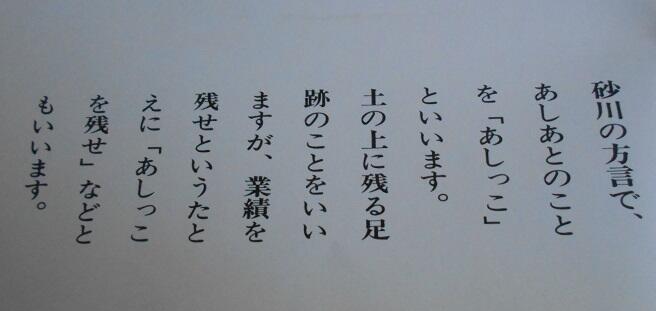 砂川の方言で、
あしあとのこと
を「あしっこ」
といいます。
土の上に残る足
跡のことをいい
ますが、業績を
残せというたと
えに「あしっこ
を残せ」などと
もいいます。